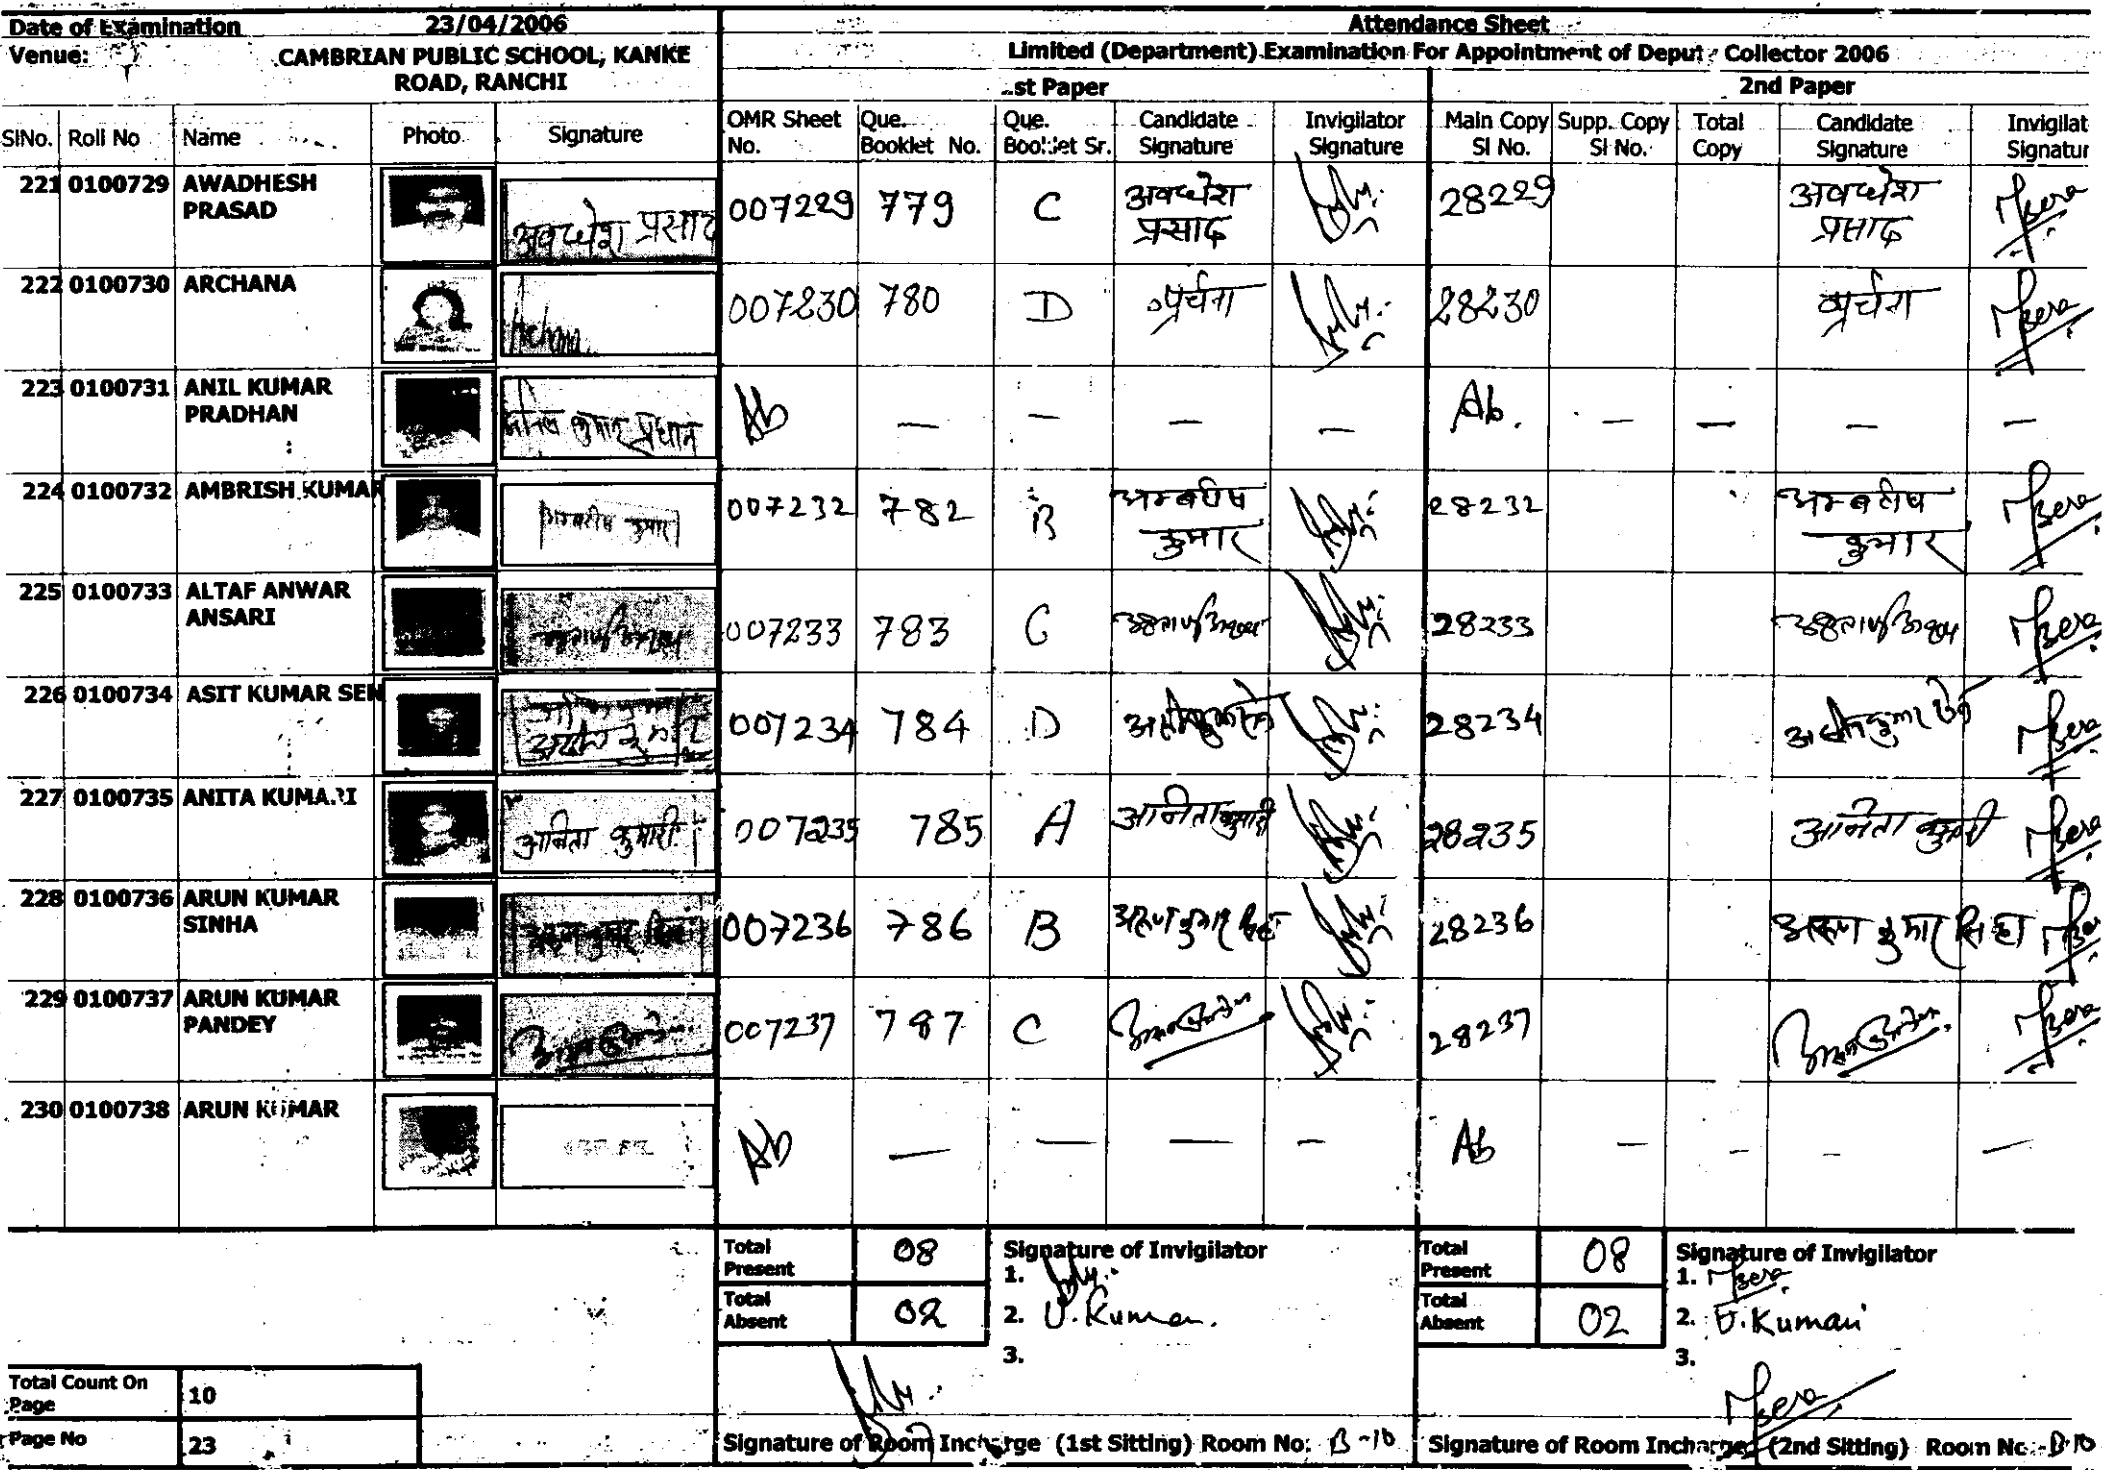 Date of Examination 23/04/2006 Attendance Sheet
Venue: CAMBRIAN PUBLIC SCHOOL, KANKE Limited (Department) Examination For Appointment of Deputy Collector 2006
ROAD, RANCHI st Paper 2nd Paper
SlNo. Roll No Name Photo Signature OMR Sheet No. Que. Booklet No. Que. Booklet Sr. Candidate Signature Invigilator Signature Main Copy Sl No. Supp. Copy Sl No. Total Copy Candidate Signature Invigilat Signatur
221 0100729 AWADHESH PRASAD अवधेश प्रसाद 007229 779 C अवधेश प्रसाद 28229 अवधेश प्रसाद
222 0100730 ARCHANA Archana 007230 780 D अर्चना 28230 अर्चना
223 0100731 ANIL KUMAR PRADHAN अनिल कुमार प्रधान Ab — — — — Ab. — — — —
224 0100732 AMBRISH KUMAR अम्बरीष कुमार 007232 782 B अम्बरीष कुमार 28232 अम्बरीष कुमार
225 0100733 ALTAF ANWAR ANSARI 007233 783 C 28233
226 0100734 ASIT KUMAR SEN 007234 784 D 28234
227 0100735 ANITA KUMARI अनिता कुमारी 007235 785 A अनिता कुमारी 28235 अनिता कुमारी
228 0100736 ARUN KUMAR SINHA अरुण कुमार सिन्हा 007236 786 B अरुण कुमार सिन्हा 28236 अरुण कुमार सिन्हा
229 0100737 ARUN KUMAR PANDEY 007237 787 C 28237
230 0100738 ARUN KUMAR Ab — — — — Ab — — — —
Total Present 08 Signature of Invigilator Total Present 08 Signature of Invigilator
1. 1.
Total Absent 02 2. U. Kumari. Total Absent 02 2. U. Kumari
3. 3.
Total Count On Page 10
Page No 23 Signature of Room Incharge (1st Sitting) Room No: B-10 Signature of Room Incharge (2nd Sitting) Room No:- B-10